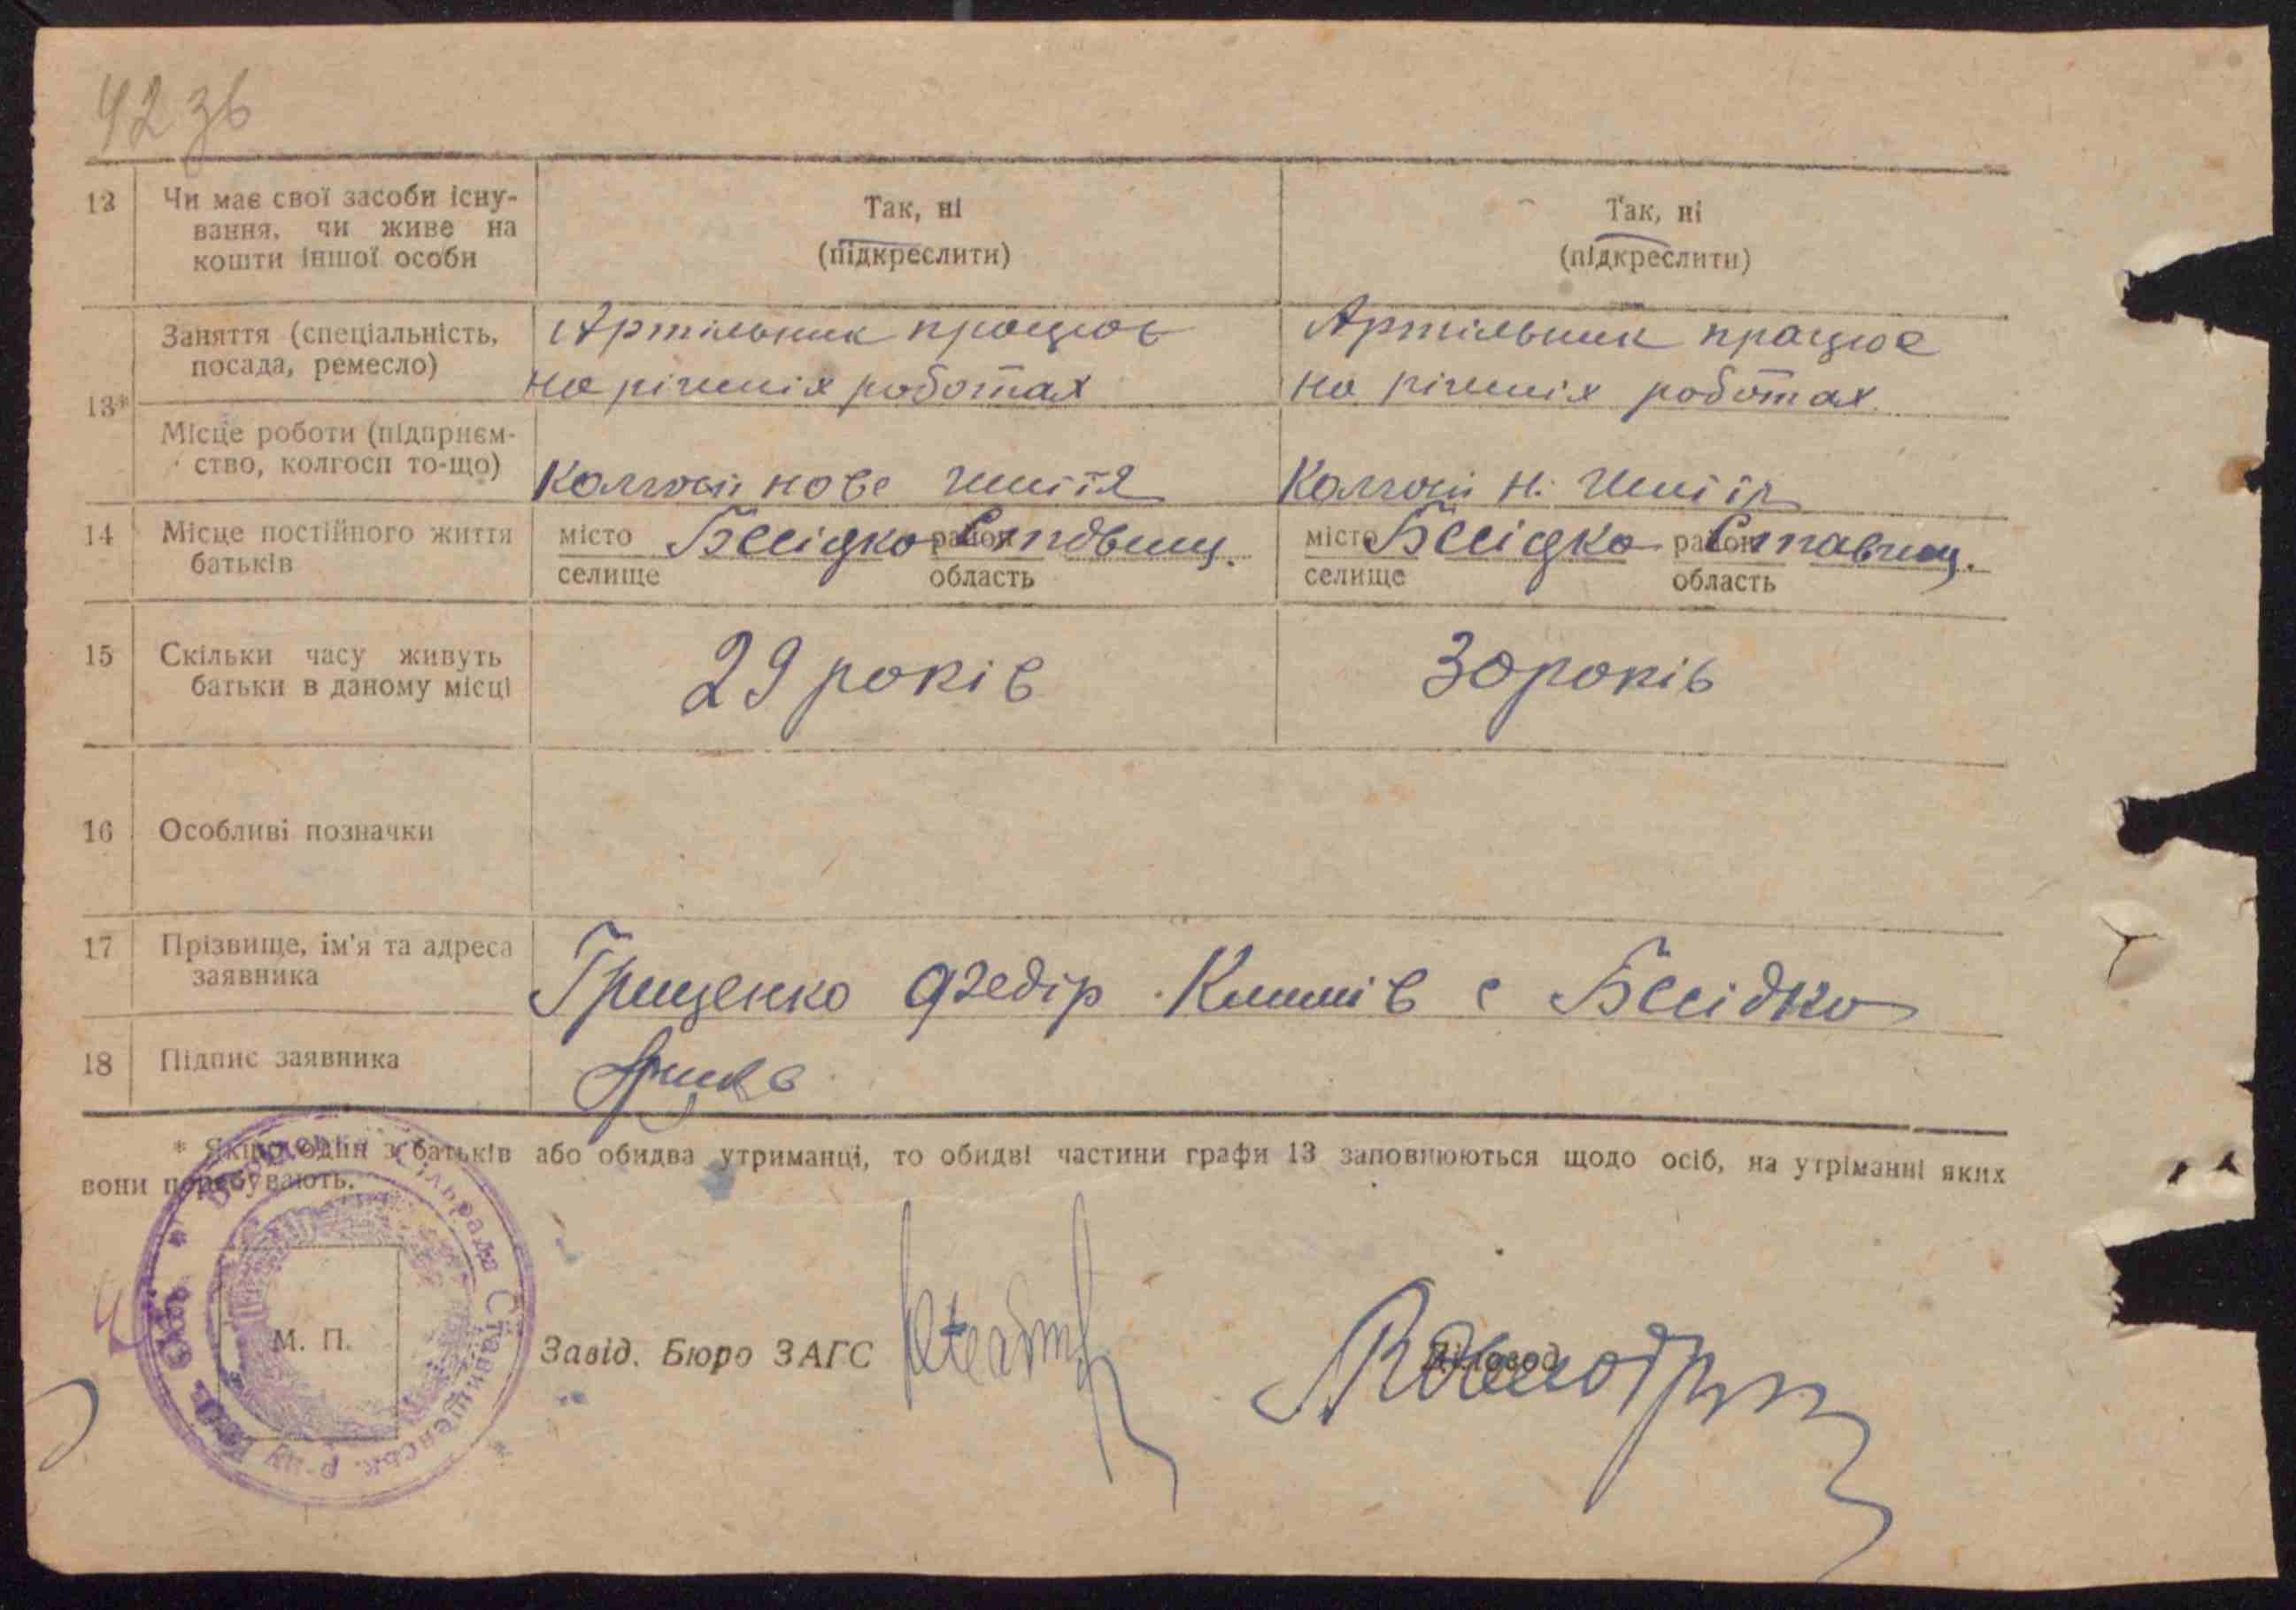 42 зв
12 Чи має свої засоби існу-
вання, чи живе на
кошти іншої особи
Так, ні
(підкреслити)
Так, ні
(підкреслити)
13*
Заняття (спеціальність,
посада, ремесло)
Артільник працює
на річних роботах
Артільник працює
на річних роботах
Місце роботи (підприєм-
ство, колгосп то-що)
Колгосп нове життя
Колгосп н. життя
14 Місце постійного життя
батьків
місто Бесідка район Ставищ.
селище область
місто Бесідка район Ставищ.
селище область
15 Скільки часу живуть
батьки в даному місці
29 років
30 років
16 Особливі позначки
17 Прізвище, ім'я та адреса
заявника
Грищенко Федір с Бесідка
18 Підпис заявника
* Якщо один з батьків або обидва утриманці, то обидві частини графи 13 заповнюються щодо осіб, на утріманні яких
вони перебувають.
сільрада Ставищенськ. р-ну
М. П.
Завід. Бюро ЗАГС
Діловод